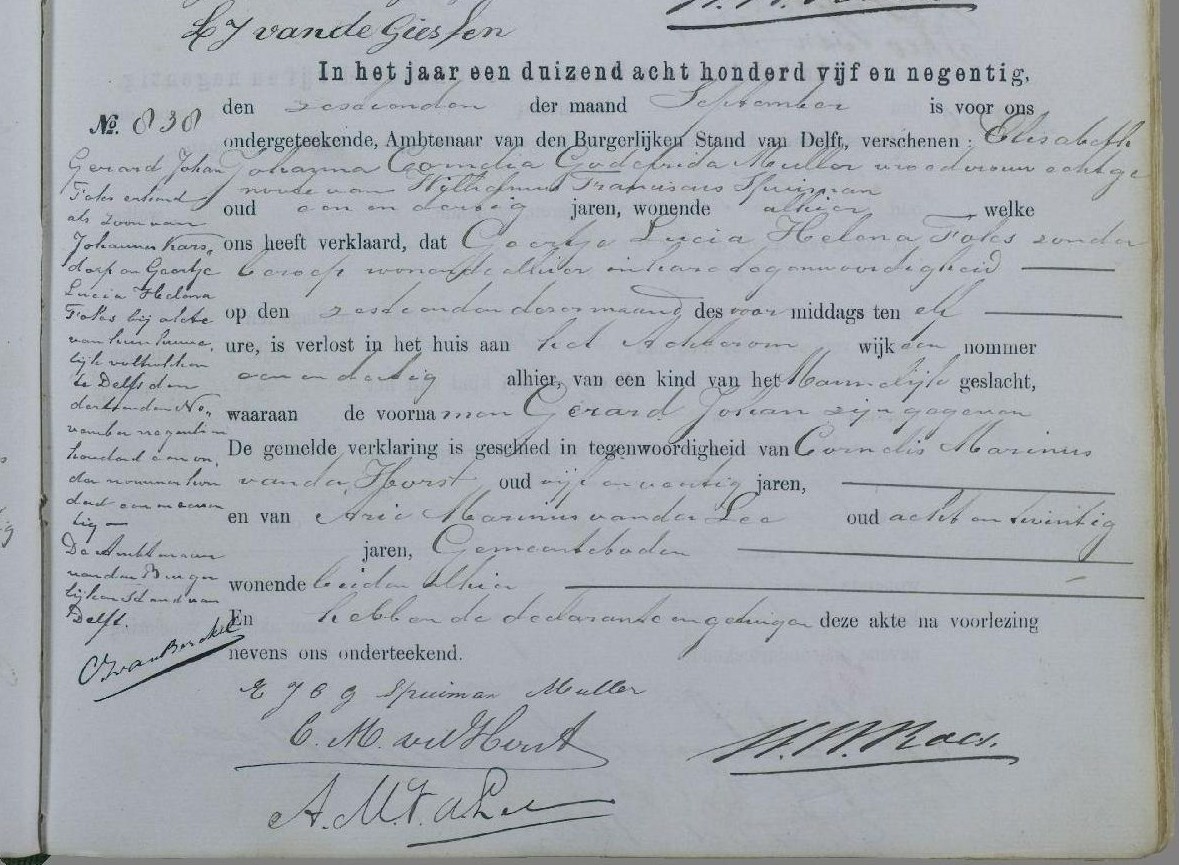 L J van de Giessen
In het jaar een duizend acht honderd vijf en negentig,
den zestienden der maand September is voor ons
No. 838
ondergeteekende, Ambtenaar van den Burgerlijken Stand van Delft, verschenen: Elisabeth
Johanna Cornelia Godefrida Muller vroedvrouw echtge
noote van Wilhelmus Franciscus Spuijman
oud een en dertig jaren, wonende alhier welke
ons heeft verklaard, dat Geertje Lucia Helena Fokes zonder
beroep wonende alhier in hare tegenwoordigheid
op den zestienden dezer maand des voor middags ten elf
ure, is verlost in het huis aan het Achterom wijk den nommer
een en dertig alhier, van een kind van het Mannelijk geslacht,
waaraan de voornamen Gerard Johan zijn gegeven
De gemelde verklaring is geschied in tegenwoordigheid van Cornelis Marinus
van der Horst oud vijf en veertig jaren,
en van Arie Marinus van der Lee oud acht en twintig
jaren, Gemeenteboden
wonende beiden alhier
En hebben de declarante en getuigen deze akte na voorlezing
nevens ons onderteekend.
Gerard Johan
Fokes erkend
als zoon van
Johannes Kars,
dorp en Geertje
Lucia Helena
Fokes bij akte
van hun huwe,
lijk voltrokken
te Delft den
dertienden No,,
vember negentien
honderd een on,
der nummer hon
derd een en zeven
tig —
De Ambtenaar
van den Burger
lijken Stand van
Delft.
C J van Berckel
E J C G Spuiman Muller
C. M. vd Horst
W. W. Roes.
A. M. V. d Lee